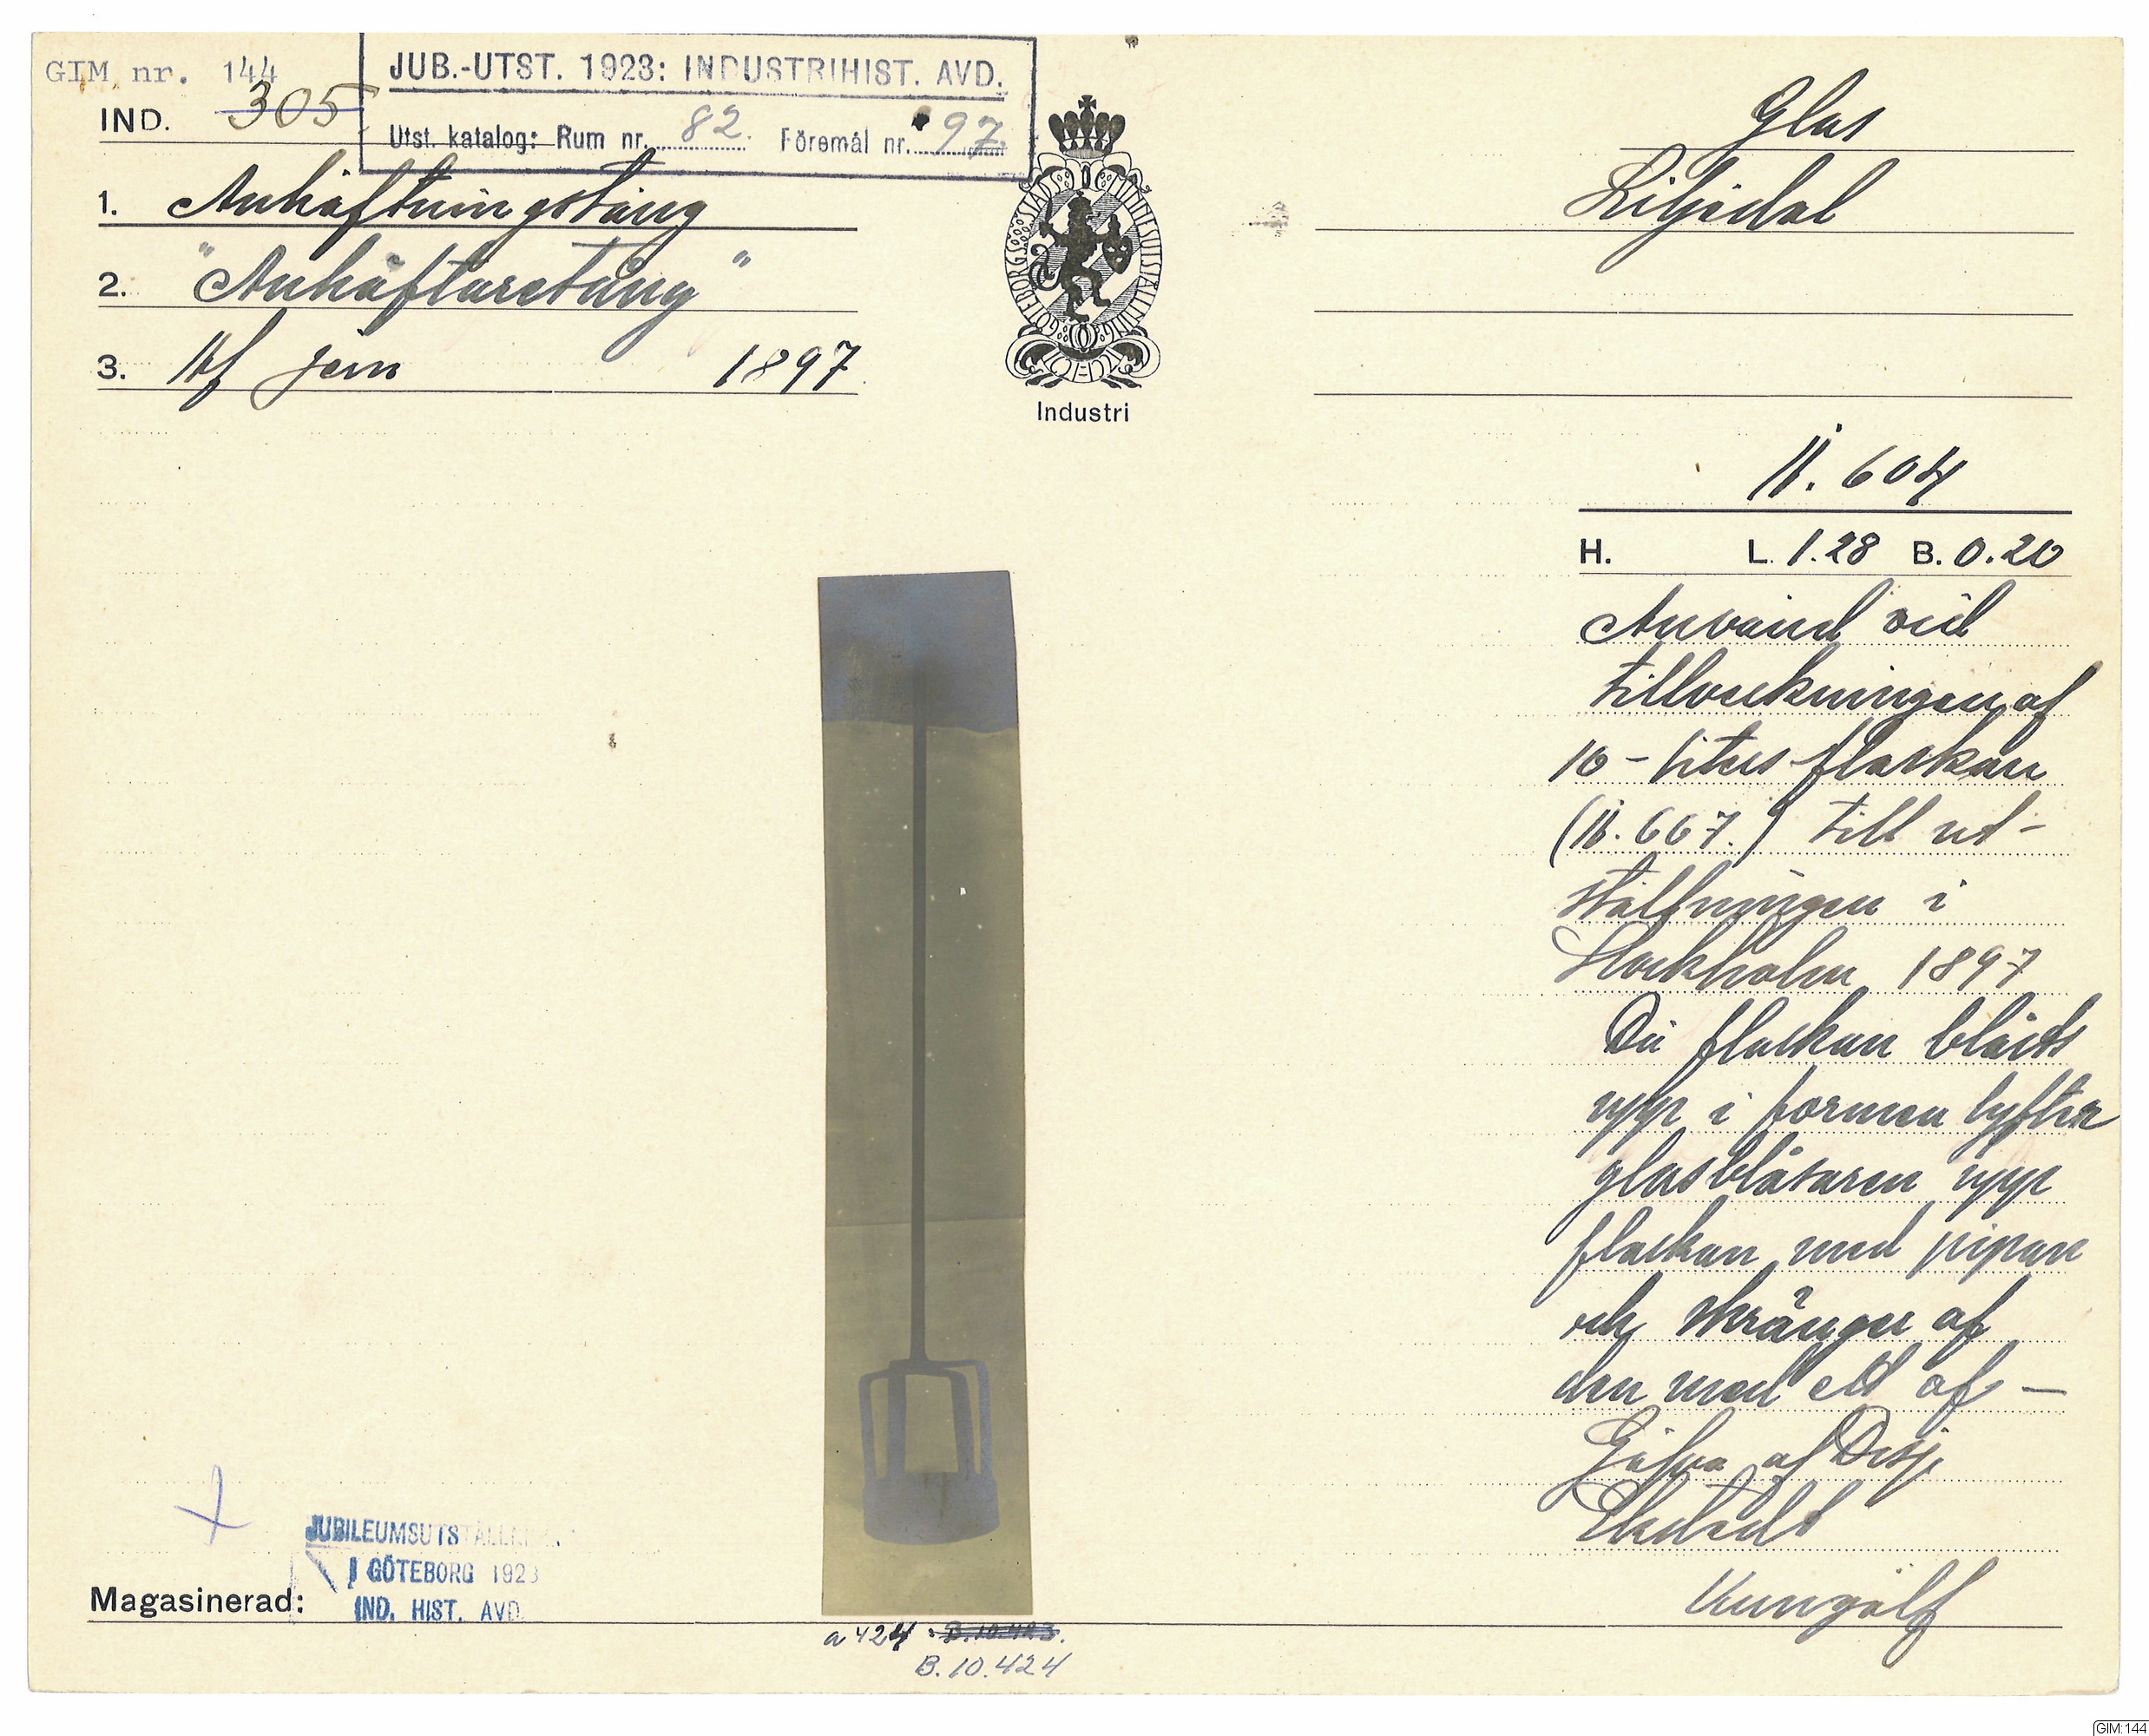 GIM nr. 144
IND. 305
JUB.-UTST. 1923: INDUSTRIHIST. AVD.
Utst. katalog: Rum nr. 82. Föremål nr. 97.
1. Anhäftningstång
2. "Anhäftaretång"
3. Af jern 1897
GÖTEBORGS STADS MINNESUTSTÄLLNING
Industri
Glas
Liljedal
Å. 604
H. L. 1.28 B. 0.20
Använd vid
tillverkningen af
10-liters flaskan
(Å. 667.) till ut-
ställningen i
Stockholm 1897
Då flaskan blåsts
upp i formen lyfter
glasblåsaren upp
flaskan med pipan
och skränger af
den med ett af-
Gåfva af Disp.
Ekstedt
Kungälf
Magasinerad:
JUBILEUMSUTSTÄLLN
I GÖTEBORG 1923
IND. HIST. AVD.
a 424 B.10.423.
B.10.424
GIM:144